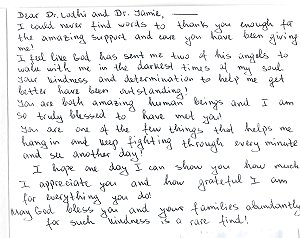 Dear Dr. Lodhi and Dr. Jamie,
I could never find words to thank you enough for
the amazing support and care you have been giving
me!
I feel like God has sent me two of his angels to
walk with me in the darkest times of my soul.
Your kindness and determination to help me get
better have been outstanding!
You are both amazing human beings and I am
so truly blessed to have met you!
You are one of the few things that helps me
hang in and keep fighting through every minute
and see another day!
I hope one day I can show you how much
I appreciate you and how grateful I am
for everything you do!
May God bless you and your families abundantly
for such kindness is a rare find!